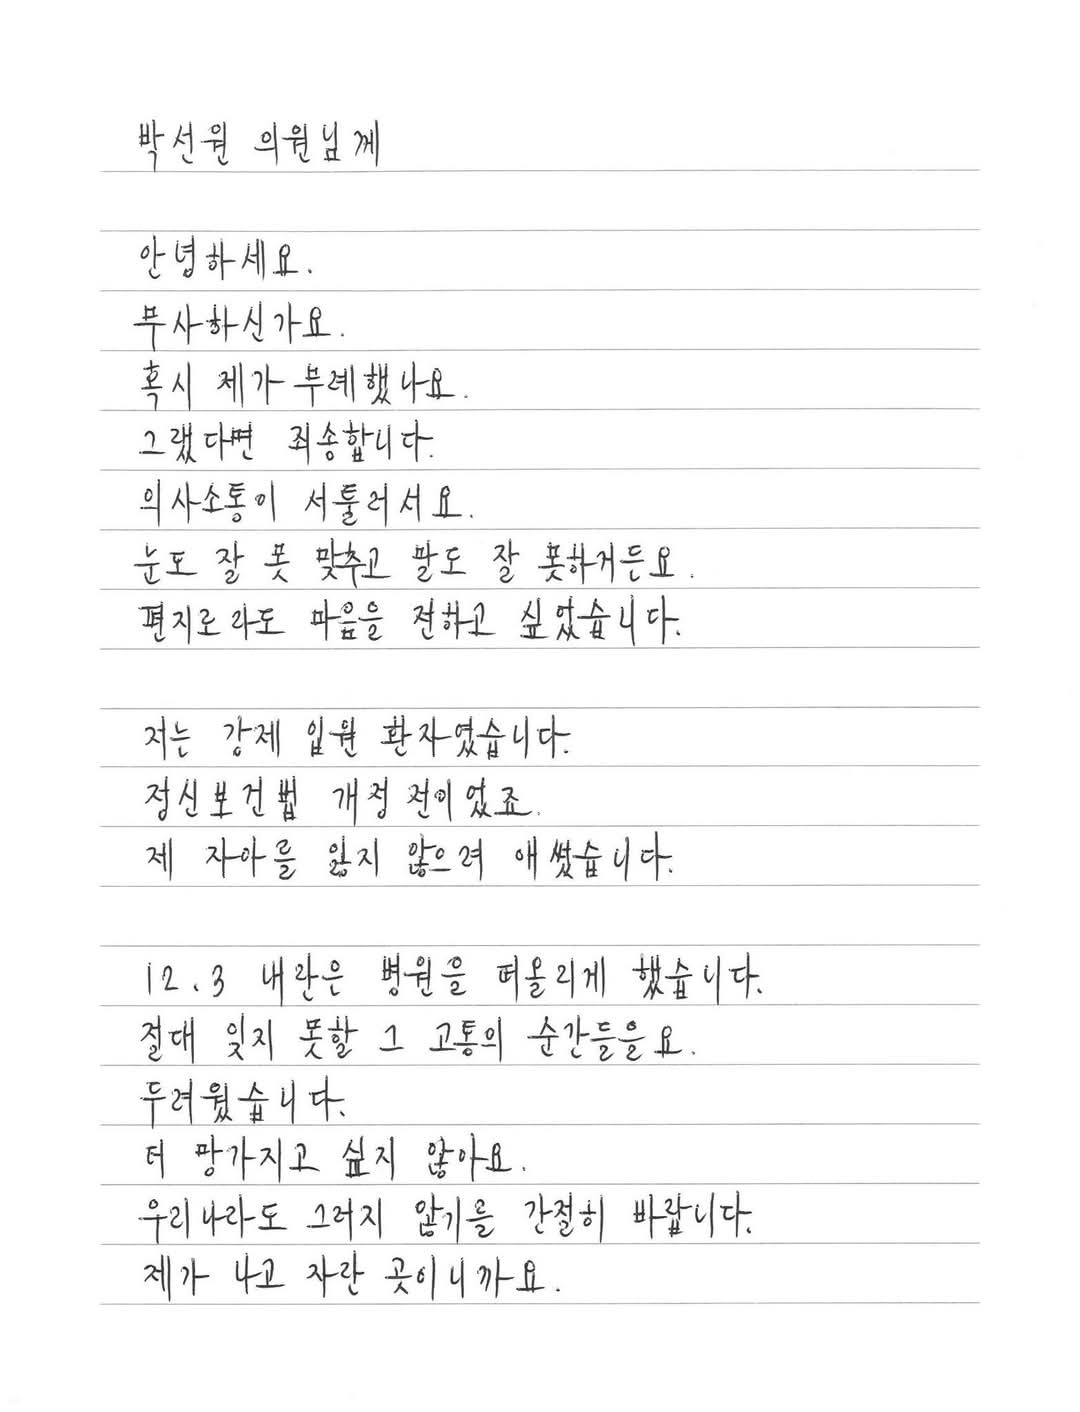 박선원 의원님께
안녕하세요.
무사하신가요.
혹시 제가 무례했나요.
그랬다면 죄송합니다.
의사소통이 서툴러서요.
눈도 잘 못 맞추고 말도 잘 못하거든요.
편지로라도 마음을 전하고 싶었습니다.
저는 강제 입원 환자였습니다.
정신보건법 개정 전이었죠.
제 자아를 잃지 않으려 애썼습니다.
12.3 내란은 병원을 떠올리게 했습니다.
절대 잊지 못할 그 고통의 순간들을요.
두려웠습니다.
더 망가지고 싶지 않아요.
우리나라도 그러지 않기를 간절히 바랍니다.
제가 나고 자란 곳이니까요.